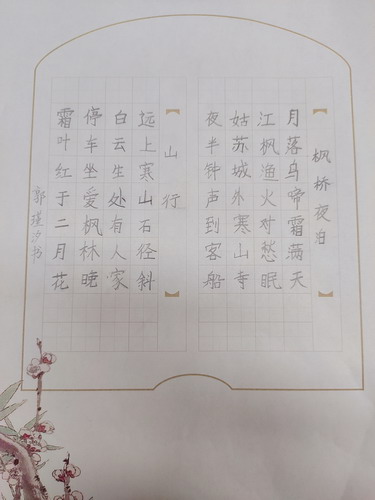 枫桥夜泊
月落乌啼霜满天
江枫渔火对愁眠
姑苏城外寒山寺
夜半钟声到客船
【山行】
远上寒山石径斜
白云生处有人家
停车坐爱枫林晚
霜叶红于二月花
郭瑾汐书